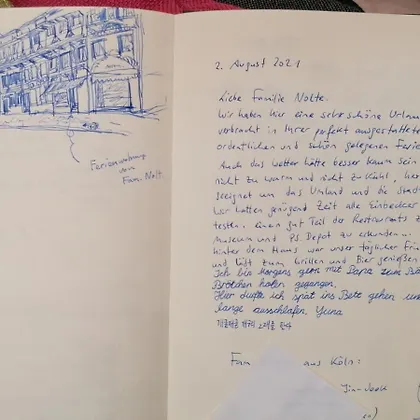 Ferienwohnung
von
Fam. Nolt.
2. August 2021
Liebe Familie Nolte,
wir haben hier eine sehr schöne Urlau
verbracht in Ihrer perfekt ausgestattete
ordentlichen und schön gelegenen Ferie
Auch das Wetter hätte besser kaum sein
nicht zu warm und nicht zu kühl, her
geeignet um das Umland und die Stad
Wir hatten genügend Zeit alle Einbecker
testen, einen gut Teil der Restaurants z
Museum und PS. Depot zu erkunden.
Hinter dem Haus war unser täglicher
und lädt zum Grillen und Bier genießen
Ich bin morgens gern mit Papa zum Bä
Brötchen holen gegangen.
Hier durfte ich spät ins Bett gehen un
lange ausschlafen. Yuna
Fam aus Köln: